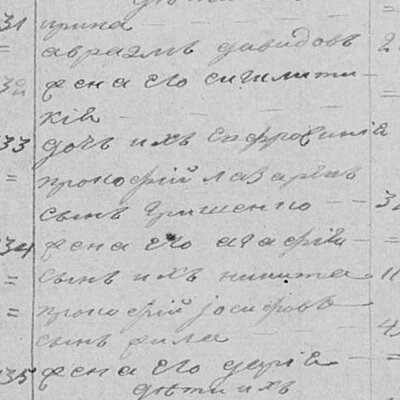 31 ирина
= авраамъ давидовъ 2
32 жена его сиклити
кія
33 дочь ихъ епфросинія
= прокофій лазаревъ
сынъ гришенко 3
34 жена его агафія =
= сынъ ихъ никита 11
= прокофій јосифовъ
сынъ 4
35 жена его дарія
дѣти ихъ